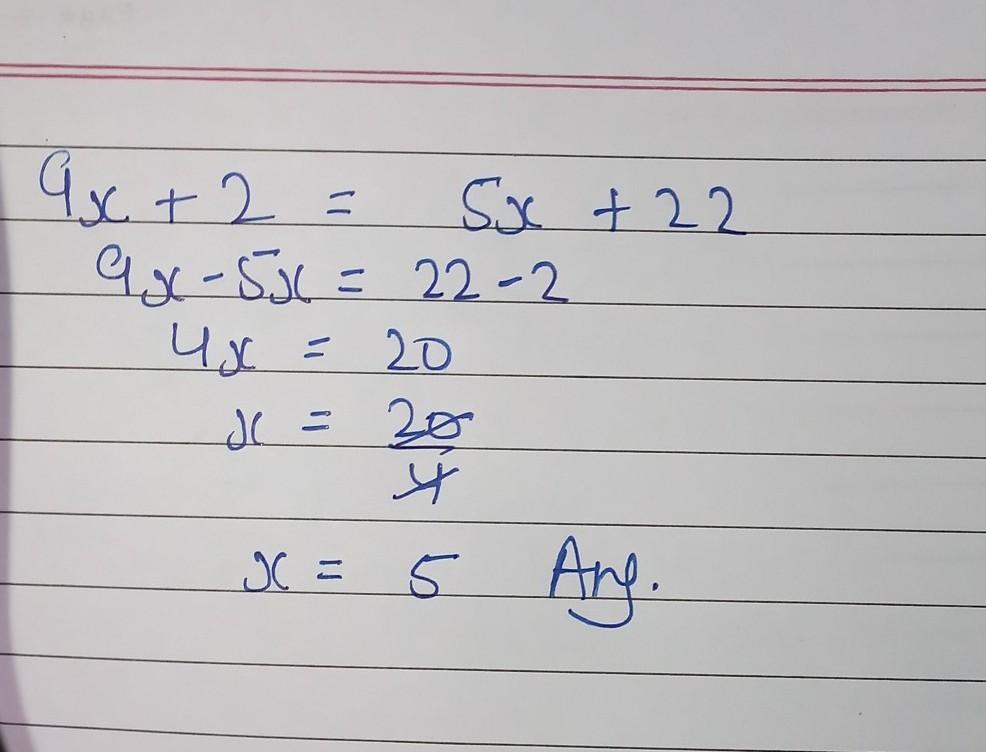 9x + 2 = 5x + 22
9x - 5x = 22 - 2
4x = 20
x = 20
4
x = 5 Ans.